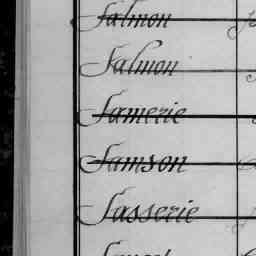 Salmon
Salmon
Samerie
Samson
Sasserie